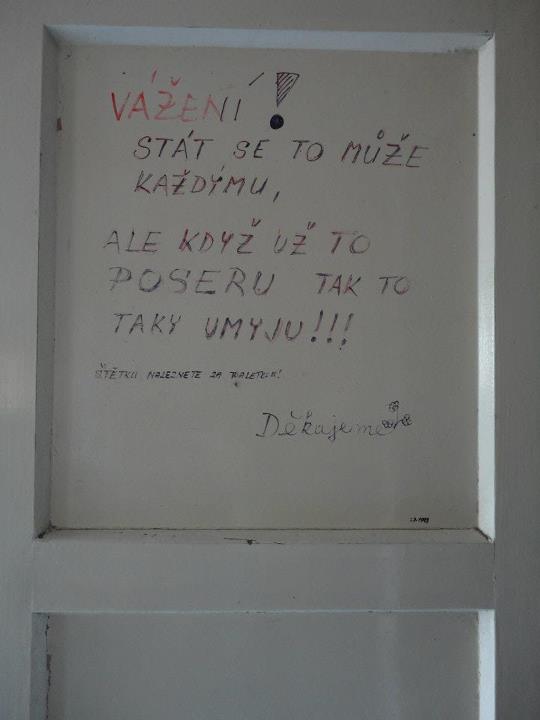 VÁŽENÍ!
STÁT SE TO MŮŽE
KAŽDÝMU,
ALE KDYŽ UŽ TO
POSERU TAK TO
TAKY UMYJU!!!
ŠTĚTKU NALEZNETE ZA TOALETOU!
Děkajeme